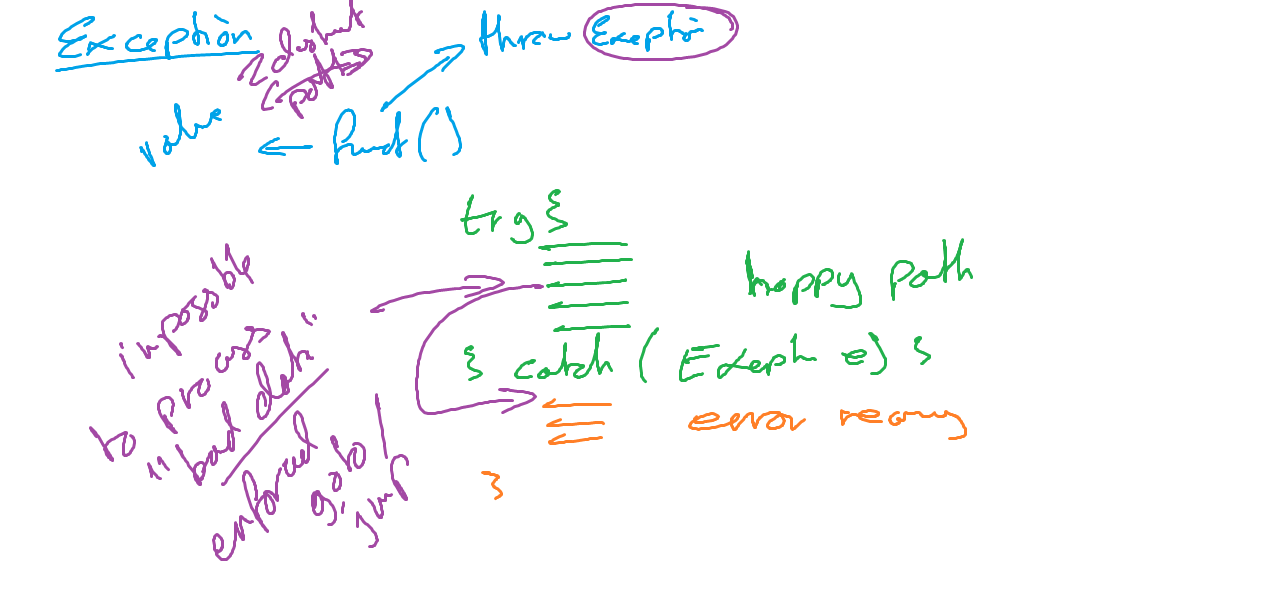 Exception
2 distinct
paths
throw Exeption
value
funct()
try {
happy path
} catch ( Exeph e) {
error recovery
}
impossible
to process
"bad data"
enforced
goto /
jump